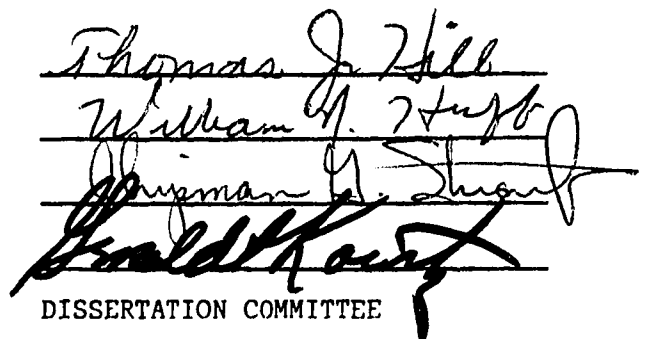 Thomas J. Hill
William N. Huff
Chipman G. Stuart
Gerald Kowitz
DISSERTATION COMMITTEE